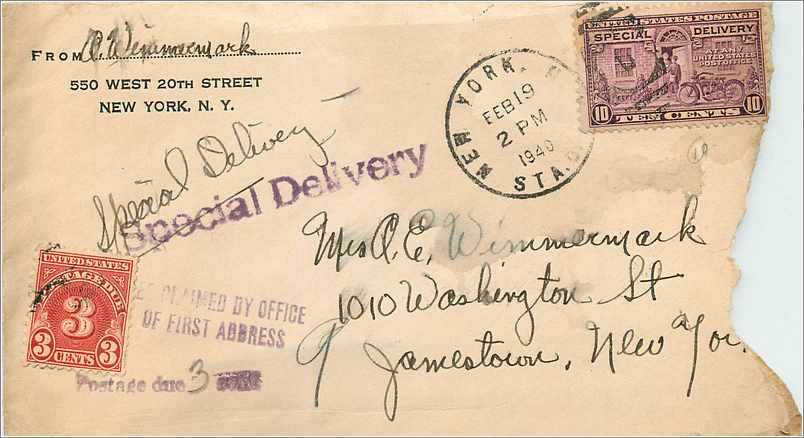 FROM O. Wimmermark
550 WEST 20TH STREET
NEW YORK, N. Y.
NEW YORK, N.
FEB 19
2 PM
1940
STA.
UNITED STATES POSTAGE
SPECIAL DELIVERY
AT ANY
UNITED STATES
POST OFFICE
10 10
TEN CENTS
Special Delivery
Special Delivery
Mrs O. E. Wimmermark
1010 Washington St
Jamestown, New Yor.
UNITED STATES
POSTAGE DUE
3
3 CENTS 3
FEE CLAIMED BY OFFICE
OF FIRST ADDRESS
Postage due 3